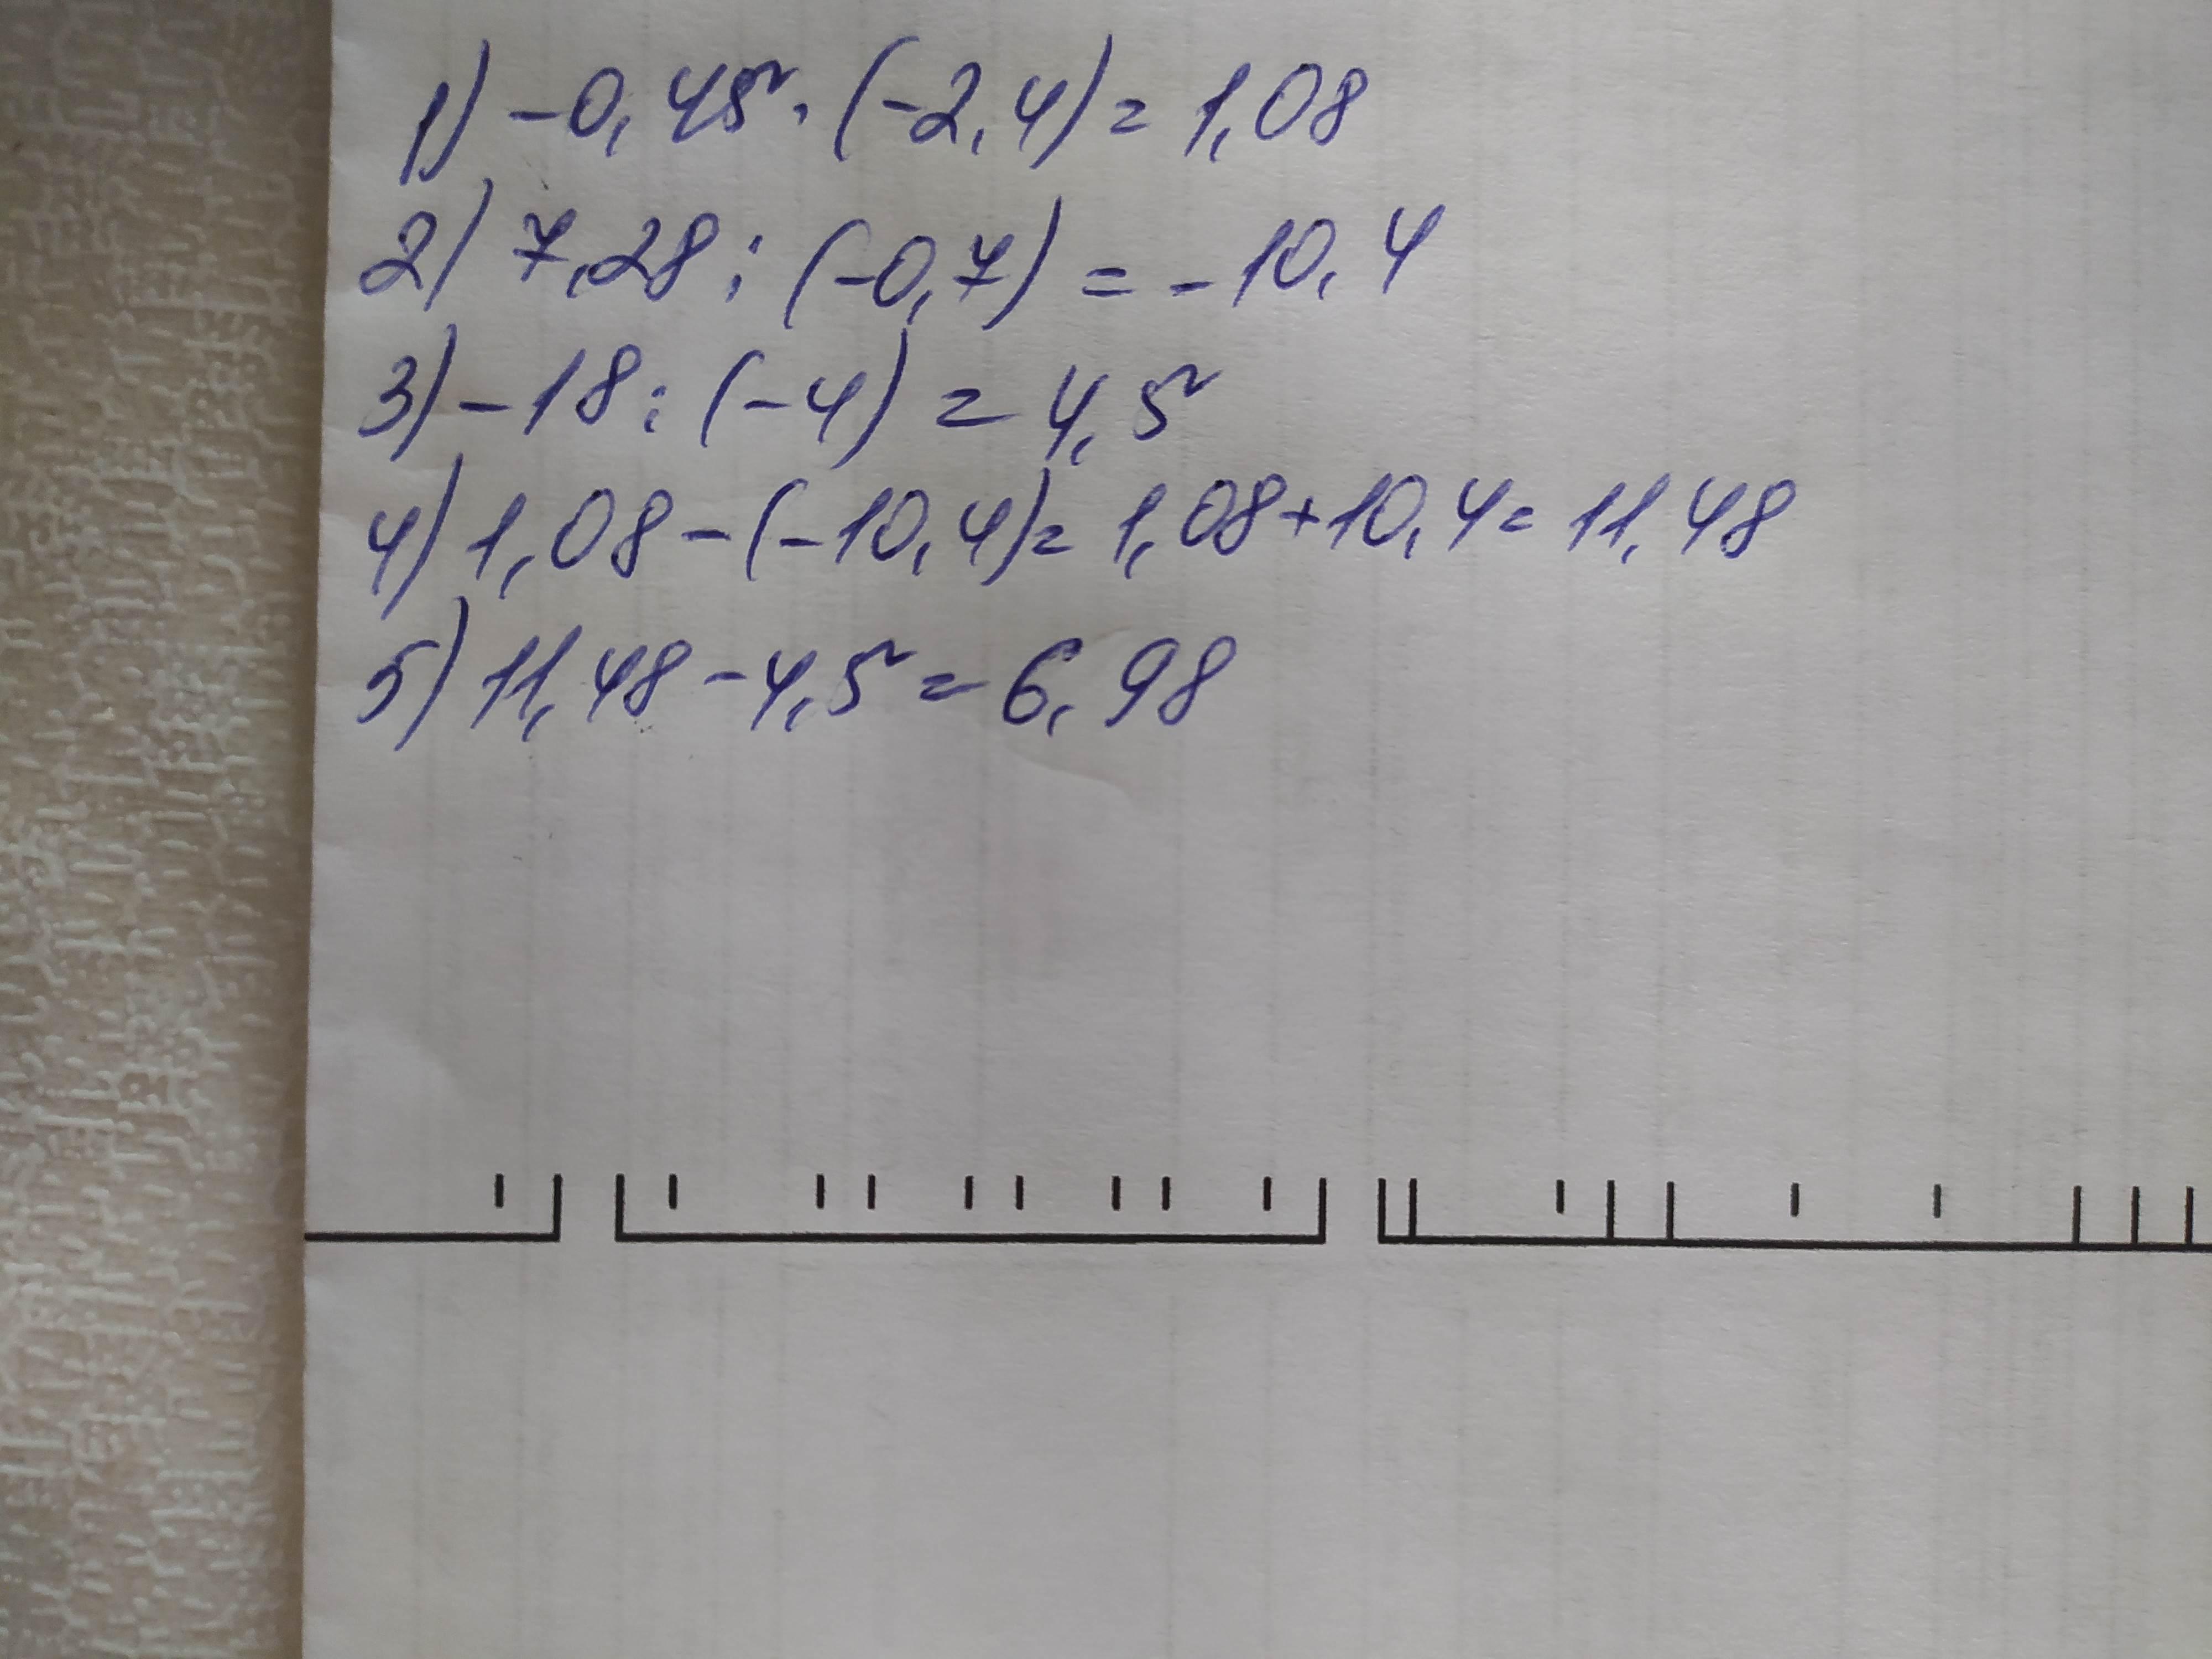 1) -0,45 · (-2,4) = 1,08
2) 7,28 : (-0,7) = -10,4
3) -18 : (-4) = 4,5
4) 1,08 - (-10,4) = 1,08 + 10,4 = 11,48
5) 11,48 - 4,5 = 6,98